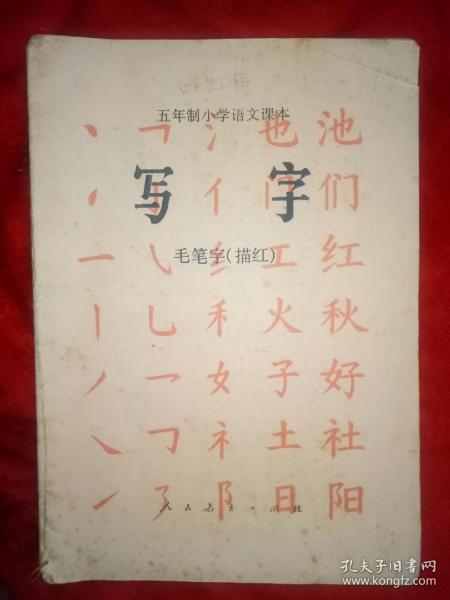 五年制小学语文课本
写字
毛笔字(描红)
氵也池
亻门们
纟工红
禾火秋
女子好
礻土社
阝日阳
人民教育出版社
孔夫子旧书网
www.kongfz.com